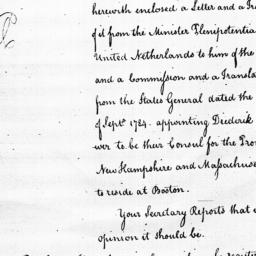 herewith enclosed a Letter and a Tra
of it from the Minister Plenepotentia
United Netherlands to him of the
and a Commission and a Transla
from the States General dated the
of Septr. 1784. appointing Diederik
wer to be their Consul for the Pro
New Hampshire and Massachuse
to reside at Boston.
Your Secretary Reports that
opinion it should be.